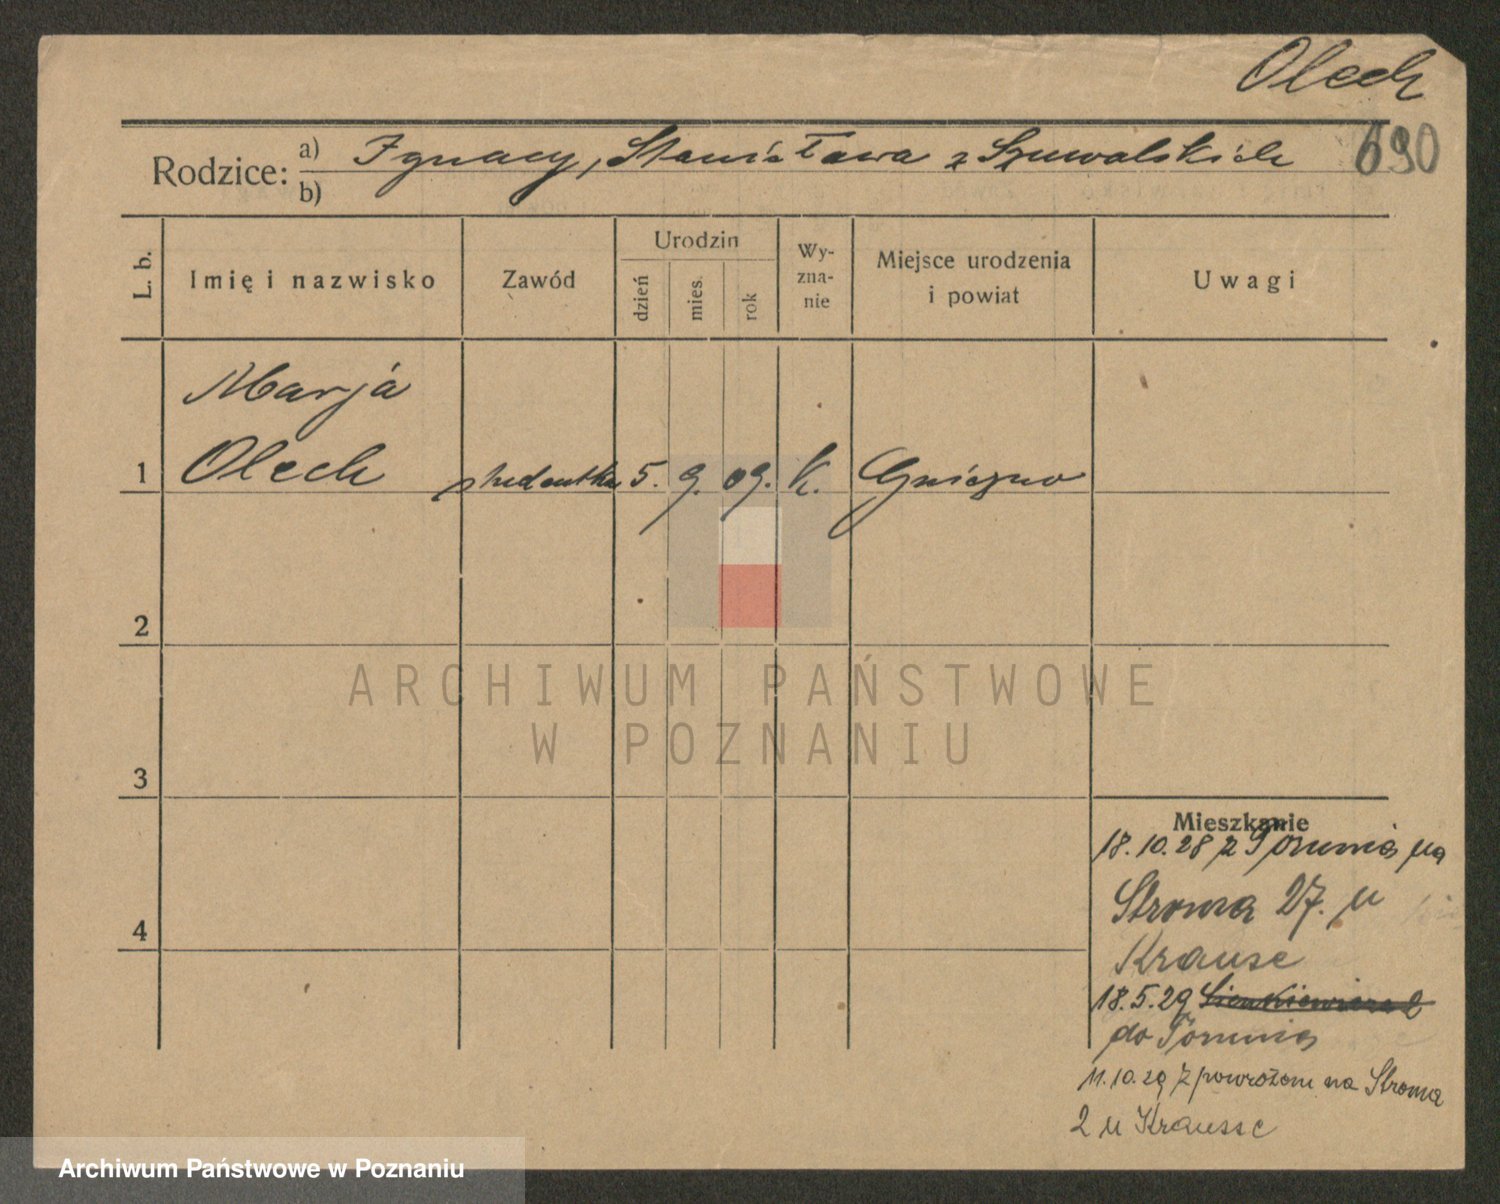 Olech
690
Rodzice: a) Ignacy, Stanisława z Szuwalskich
b)
L. b. Imię i nazwisko Zawód Urodzin dzień mies. rok Wy-zna-nie Miejsce urodzenia i powiat Uwagi
Marja
1 Olech studentka 5. 9. 09. k. Gniezno
2
ARCHIWUM PAŃSTWOWE
W POZNANIU
3
Mieszkanie
18.10.28 z Torunia na
Stroma 27. u
4
Krause
18.5.29 Sienkiewicza 2
do Torunia
11.10.29 z powrotem na Stroma
2 u Krausse
Archiwum Państwowe w Poznaniu